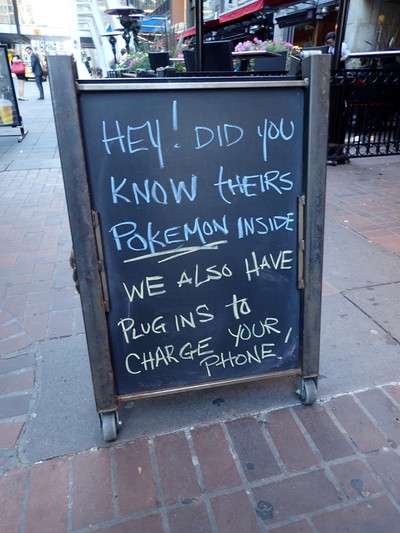 HEY! DID YOU
KNOW THEIRS
POKEMON INSIDE
WE ALSO HAVE
PLUG INS to
CHARGE YOUR
PHONE!